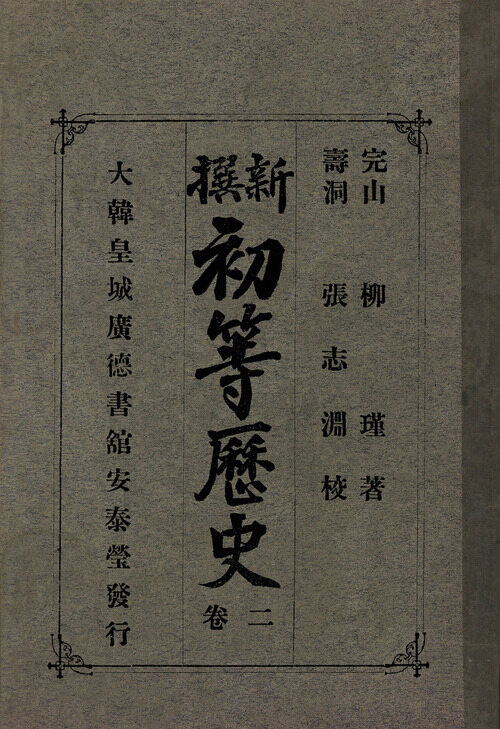 完山 柳瑾著
壽洞 張志淵校
新撰
初等歷史
卷二
大韓皇城廣德書舘安泰瑩發行